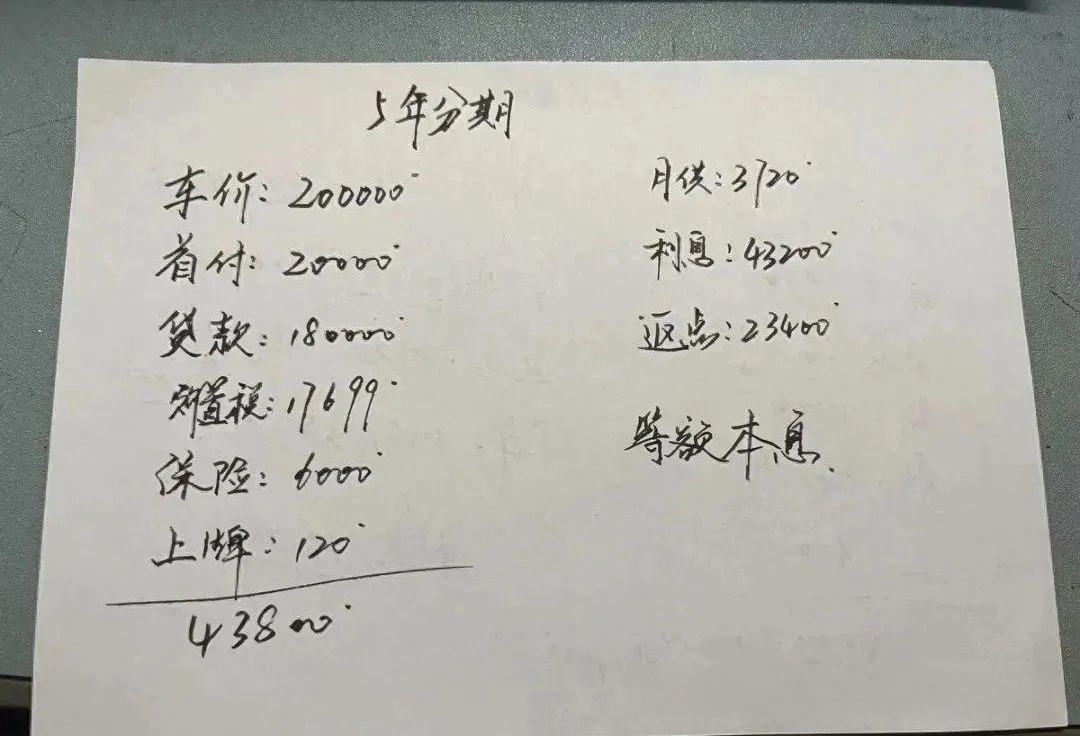 5年分期
车价:200000
首付:20000
贷款:180000
购置税:17699
保险:6000
上牌:120
43800
月供:3720
利息:43200
返点:23400
等额本息.